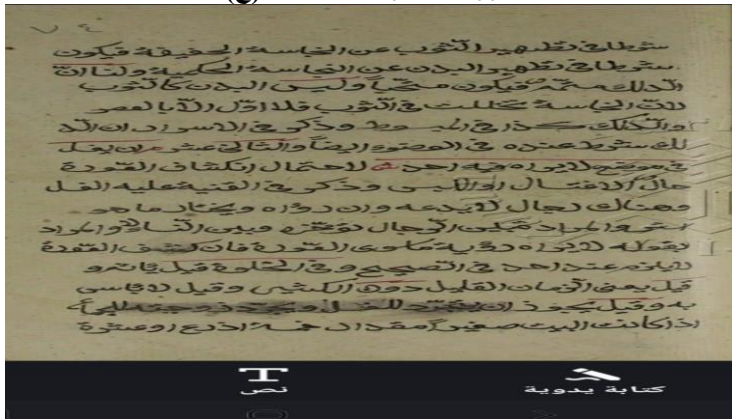 (ع)
٧٤
شرطا في تطهير الثوب عن النجاسة الحقيقية فيكون
شرطا في تطهير البدن عن النجاسة الحكمية ولنا ان
الدلك متمم فيكون مستحبا وليس البدن كالثوب
لان النجاسة تخللت في الثوب فلا تزول الا بالعصر
او الدلك كذا في المبسوط وذكر في الاسرار ان الد
لك شرط عنده في الوضوء ايضا والثاني عشر ان يغسل
في موضع لا يراه فيه احد لاحتمال انكشاف العورة
حال الاغتسال او اللبس وذكر في القنية عليه الغسل
وهناك رجال لا يدعه وان رأوه ويختار ما هو
استر والمراد تمكين الرجال تؤخره وبين النساء والمراد
بقوله لا يراه رؤية ما سوى العورة فان كشف العورة
لا يلزم عند احد في الصحيح وفي الخلوة قيل يأثم و
قيل يعفى الزمان القليل دون الكثير وقيل لا بأس
به وقيل يجوز ان يتجرد للغسل
اذا كانت البيت صغيرا مقدار خمسة اذرع او عشرة
نص
كتابة يدوية